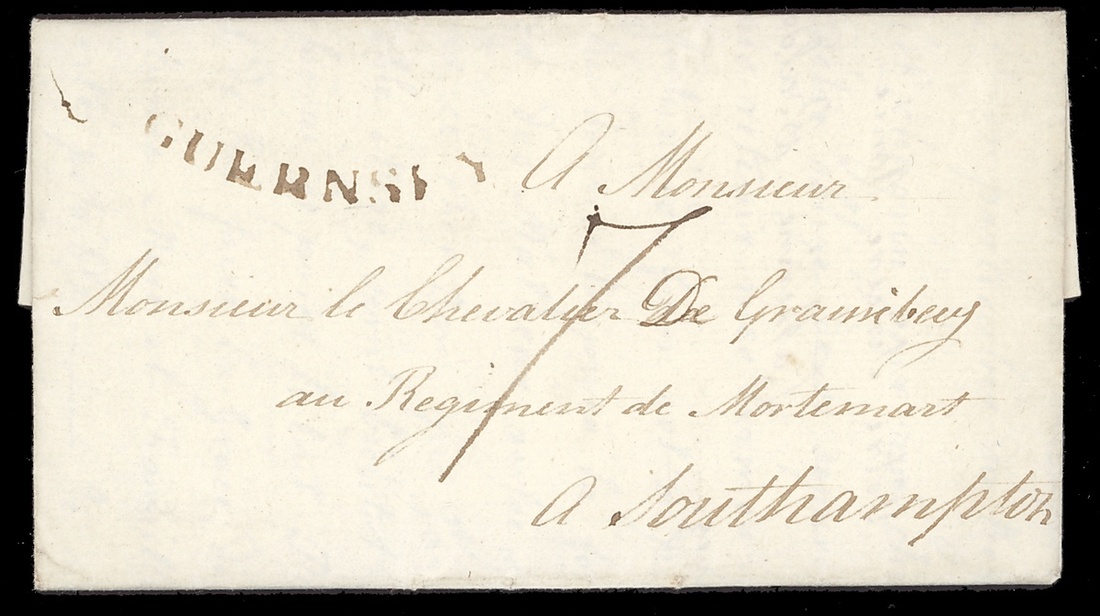 GUERNSEY
A Monsieur
7
Monsieur le Chevalier De
au Regiment de Mortemart
A Southampton